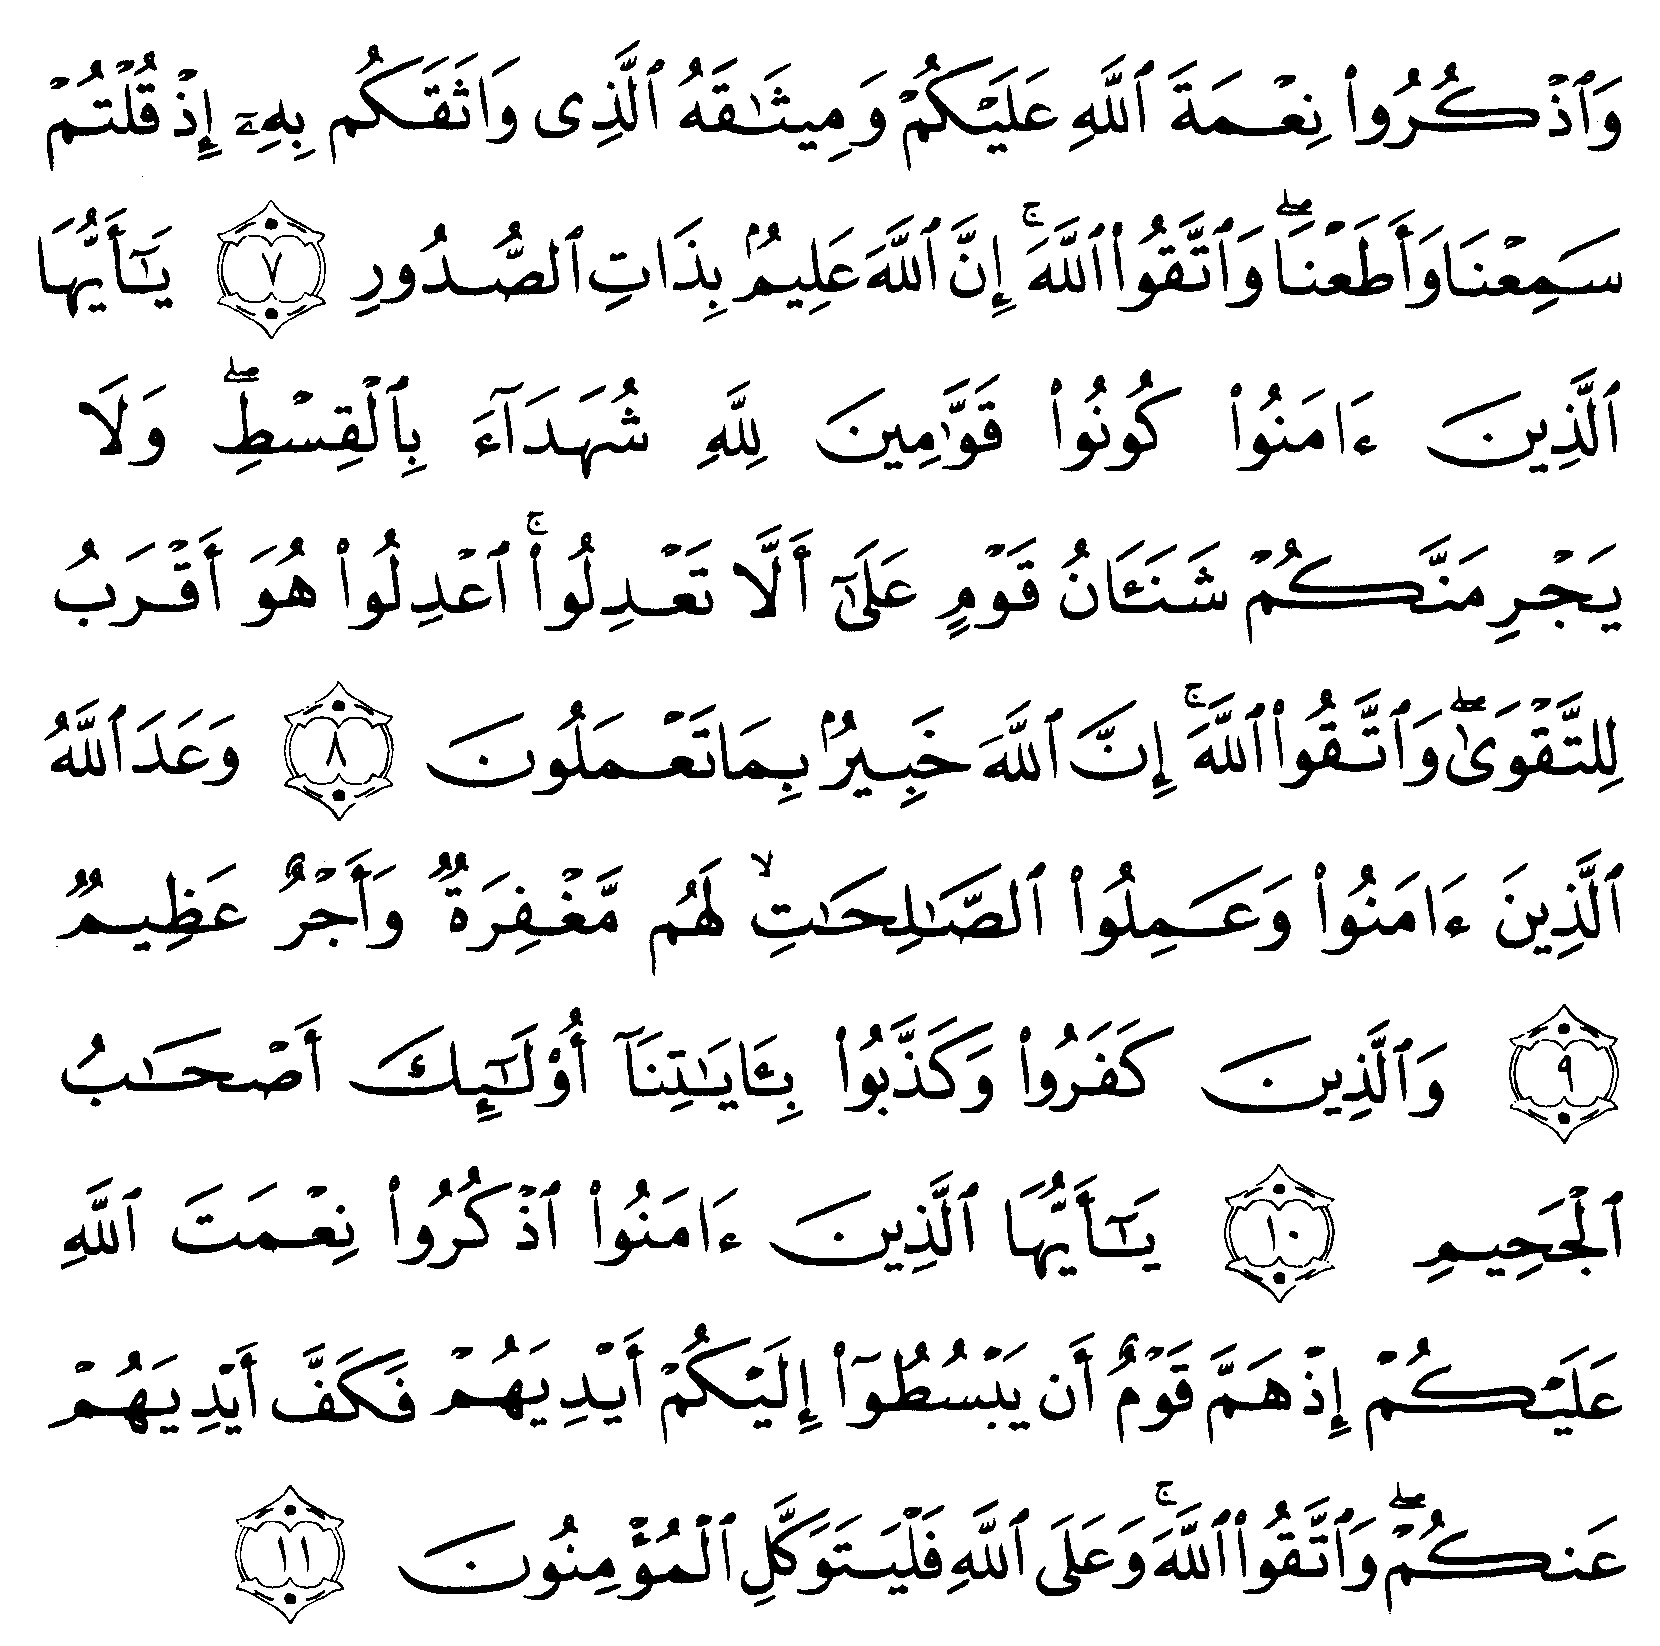 وَٱذۡكُرُوا۟ نِعۡمَةَ ٱللَّهِ عَلَيۡكُمۡ وَمِيثَٰقَهُ ٱلَّذِى وَاثَقَكُم بِهِۦٓ إِذۡ قُلۡتُمۡ
سَمِعۡنَا وَأَطَعۡنَاۖ وَٱتَّقُوا۟ ٱللَّهَۚ إِنَّ ٱللَّهَ عَلِيمُۢ بِذَاتِ ٱلصُّدُورِ ٧ يَٰٓأَيُّهَا
ٱلَّذِينَ ءَامَنُوا۟ كُونُوا۟ قَوَّٰمِينَ لِلَّهِ شُهَدَآءَ بِٱلۡقِسۡطِۖ وَلَا
يَجۡرِمَنَّكُمۡ شَنَـَٔانُ قَوۡمٍ عَلَىٰٓ أَلَّا تَعۡدِلُوا۟ۚ ٱعۡدِلُوا۟ هُوَ أَقۡرَبُ
لِلتَّقۡوَىٰۖ وَٱتَّقُوا۟ ٱللَّهَۚ إِنَّ ٱللَّهَ خَبِيرُۢ بِمَا تَعۡمَلُونَ ٨ وَعَدَ ٱللَّهُ
ٱلَّذِينَ ءَامَنُوا۟ وَعَمِلُوا۟ ٱلصَّٰلِحَٰتِۙ لَهُم مَّغۡفِرَةٌ وَأَجۡرٌ عَظِيمٌ
٩ وَٱلَّذِينَ كَفَرُوا۟ وَكَذَّبُوا۟ بِـَٔايَٰتِنَآ أُو۟لَٰٓئِكَ أَصۡحَٰبُ
ٱلۡجَحِيمِ ١٠ يَٰٓأَيُّهَا ٱلَّذِينَ ءَامَنُوا۟ ٱذۡكُرُوا۟ نِعۡمَتَ ٱللَّهِ
عَلَيۡكُمۡ إِذۡ هَمَّ قَوۡمٌ أَن يَبۡسُطُوٓا۟ إِلَيۡكُمۡ أَيۡدِيَهُمۡ فَكَفَّ أَيۡدِيَهُمۡ
عَنكُمۡۖ وَٱتَّقُوا۟ ٱللَّهَۚ وَعَلَى ٱللَّهِ فَلۡيَتَوَكَّلِ ٱلۡمُؤۡمِنُونَ ١١